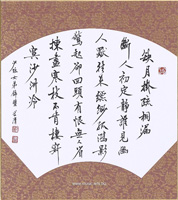 缺月掛疏桐漏
斷人初靜誰見幽
人獨往來縹緲孤鴻影
驚起卻回頭有恨無人省
揀盡寒枝不肯棲寂
寞沙洲冷